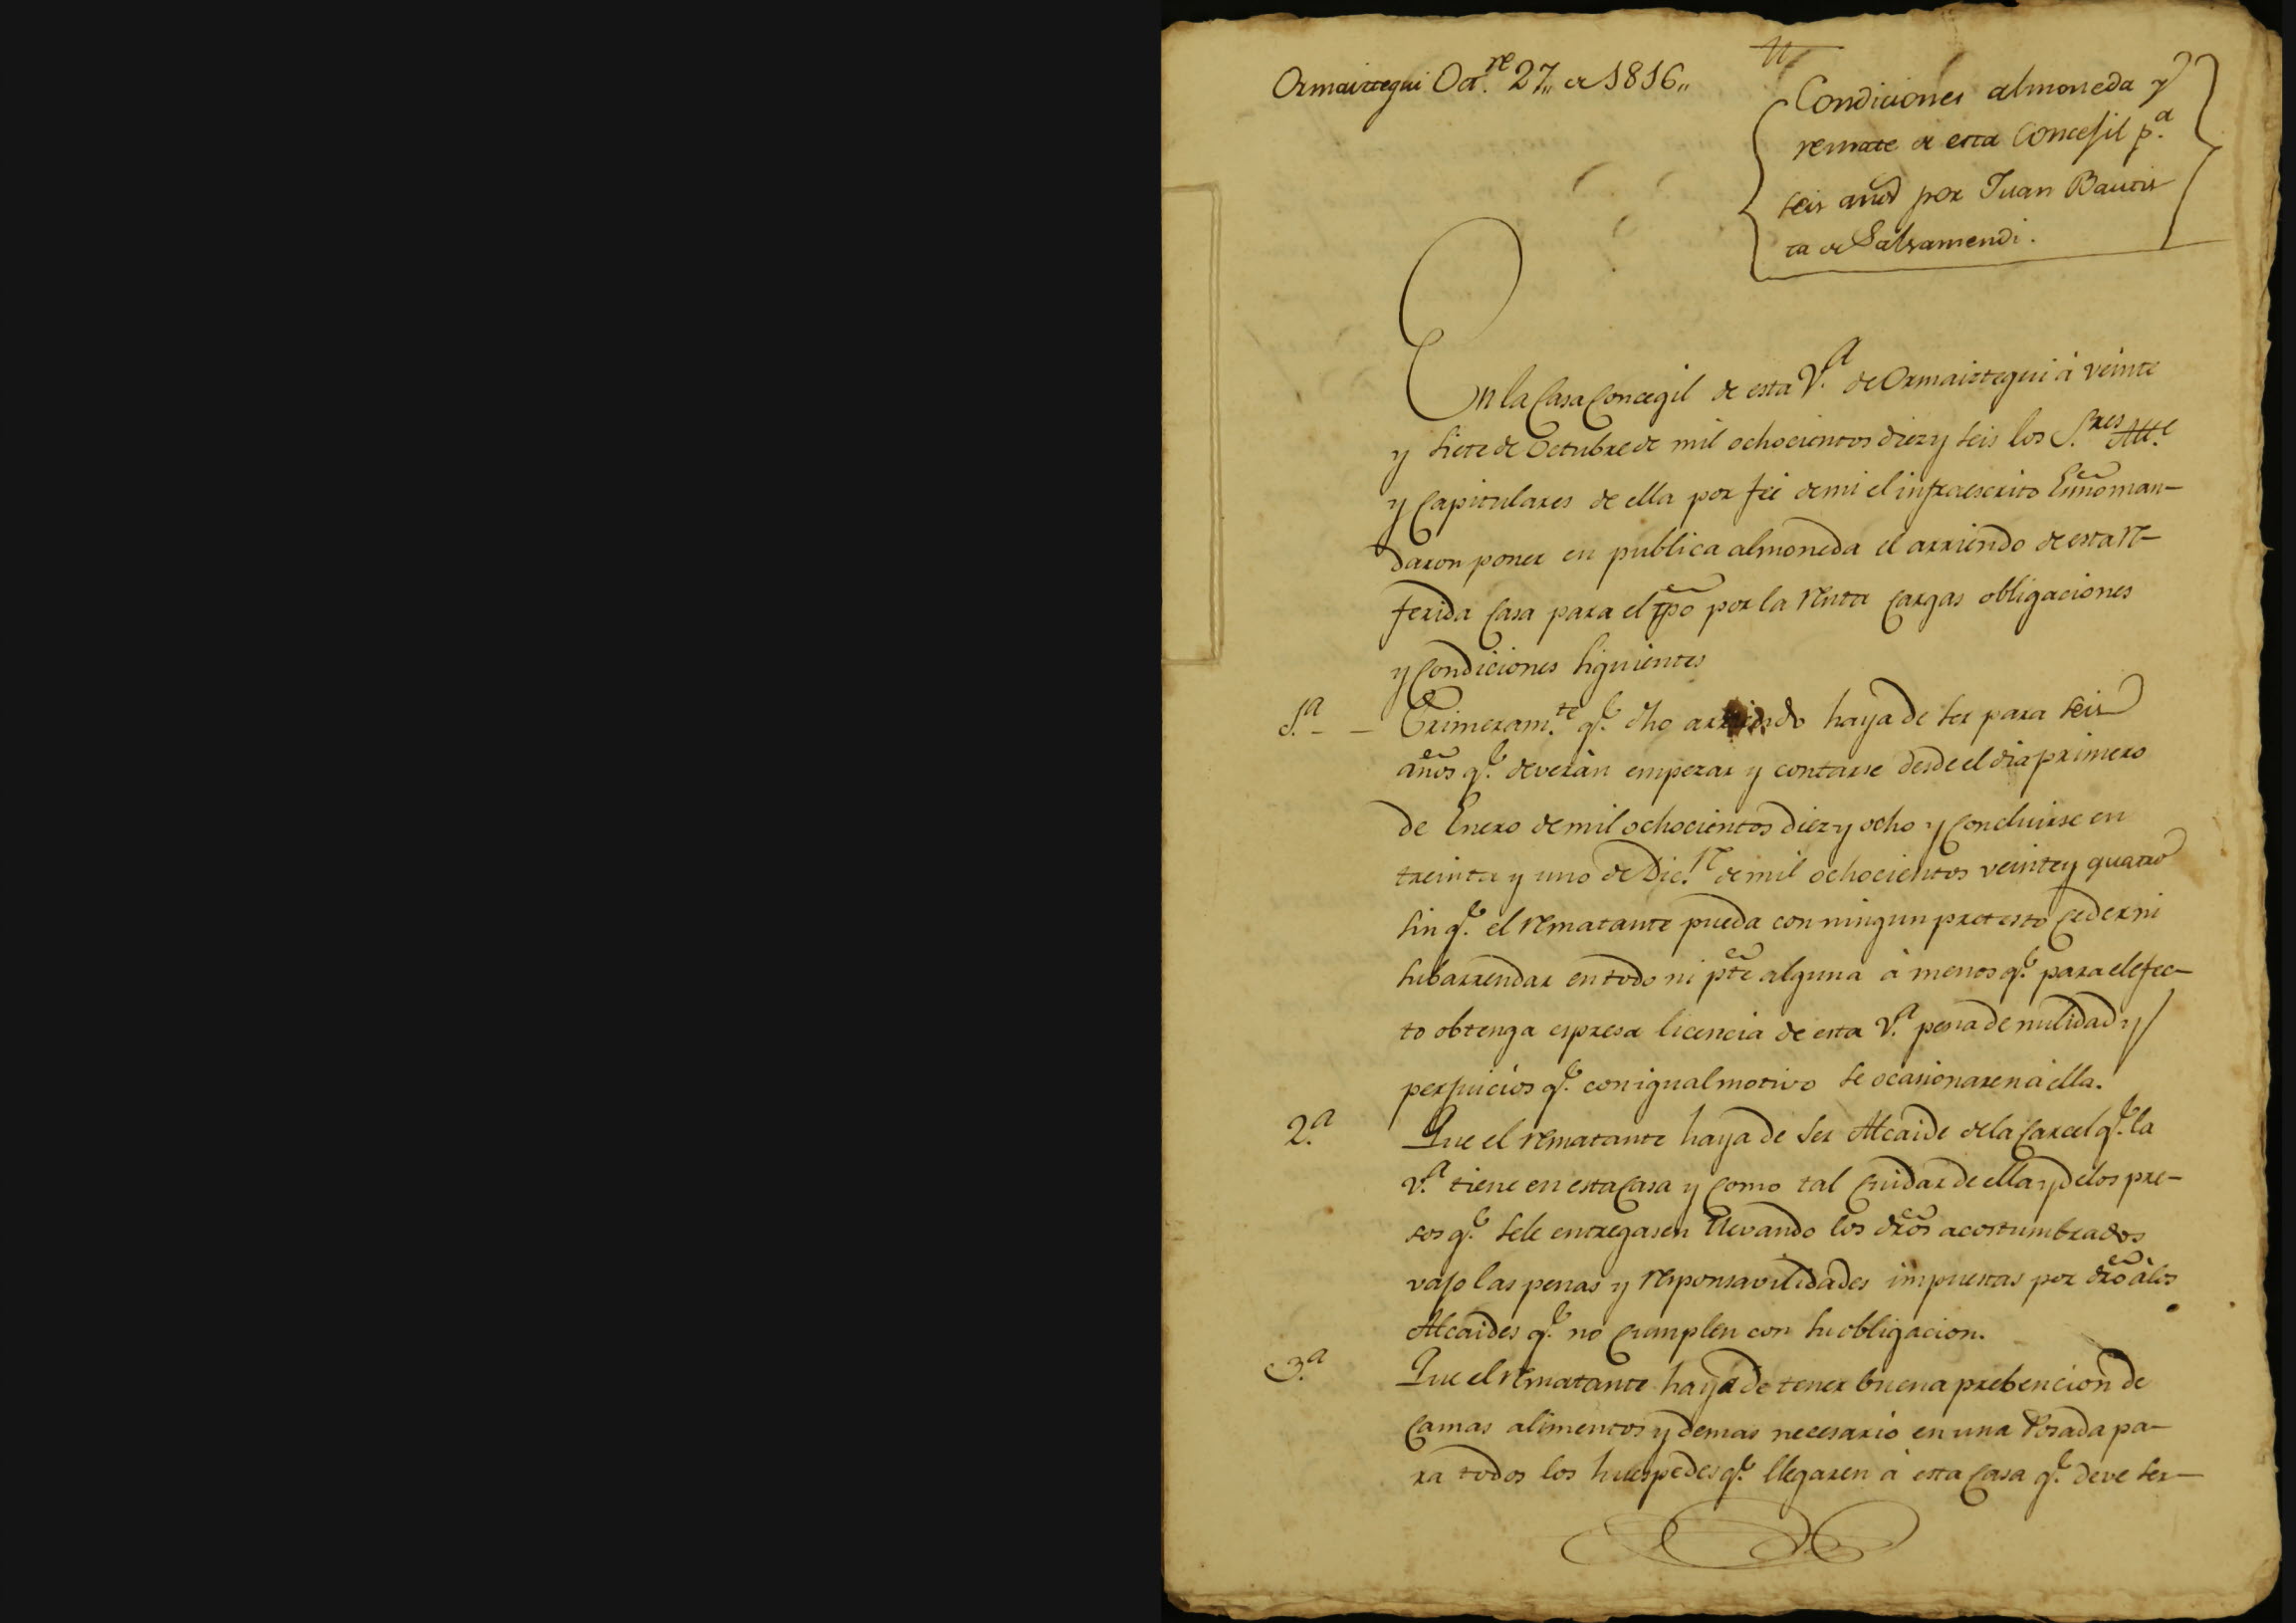 Ormaiztegui Oct.re 27,, de 1816,,
Condiciones almoneda y
remate de esta Concejil p.a
seis años por Juan Bautis
ta de Salsamendi.
En la Casa Concegil de esta V.a de Ormaiztegui à veinte
y siete de Octubre de mil ochocientos diez y seis los S.res Alc.e
y Capitulares de ella por feé de mi el infraescrito Ess̃no man-
daron poner en publica almoneda el arriendo de esta re-
ferida Casa para el tp̃o por la renta cargas obligaciones
y condiciones siguientes
1.a - - Primeram.te q.e dho arriendo haya de ser para seis
años q.e deveràn empezar y contarse desde el dia primero
de Enero de mil ochocientos diez y ocho y concluirse en
treinta y uno de Dic.re de mil ochocientos veinte y quatro
sin q.e el rematante pueda con ningun pretesto ceder ni
subarrendar en todo ni pt̃e alguna à menos q.e para el efec-
to obtenga espresa licencia de esta V.a pena de nulidad y
perjuicios q.e con igual motivo se ocasionaren à ella.
2.a Que el rematante haya de ser Alcaide de la Carcel q.e la
V.a tiene en esta Casa y como tal cuidar de ella y de los pre-
sos q.e se le entregasen llevando los dr̃os acostumbrados
vajo las penas y responsavilidades impuestas por dr̃o à los
Alcaides q.e no cumplen con su obligacion.
3.a Que el rematante haya de tener buena prebencion de
Camas alimentos y demas necesario en una Posada pa-
ra todos los huespedes q.e llegaren à esta Casa q.e deve ser-